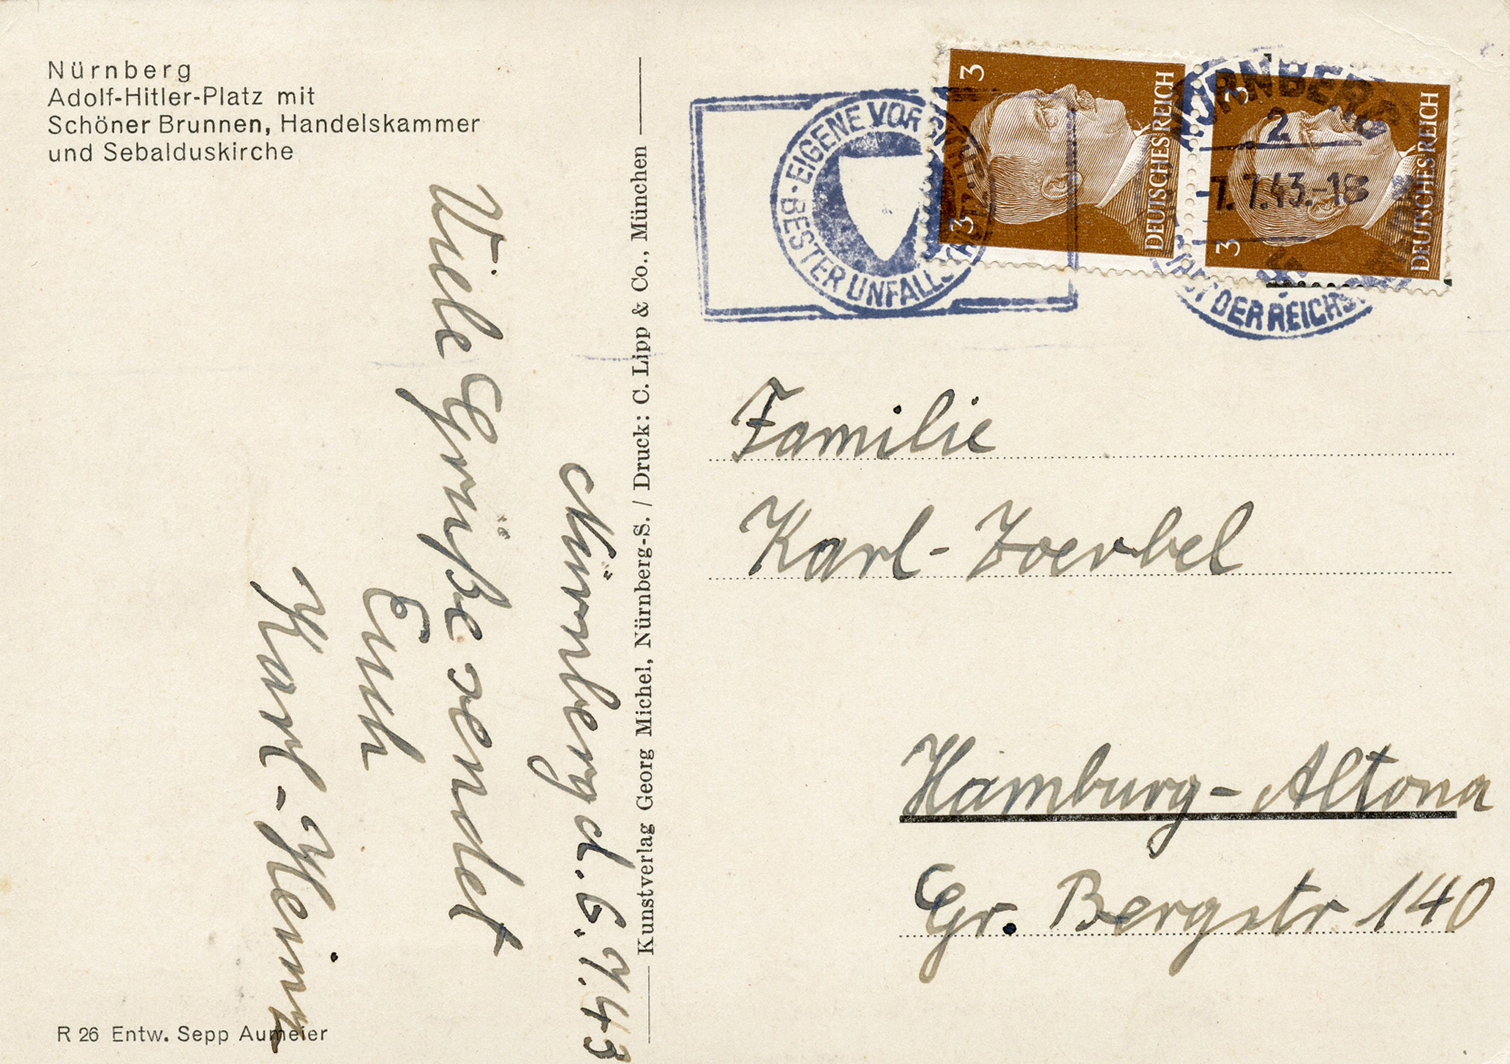 Nürnberg
Adolf-Hitler-Platz mit
Schöner Brunnen, Handelskammer
und Sebalduskirche
Nürnberg d. 6.7.43
Viele Grüße sendet
Euch
Karl-Heinz
R 26 Entw. Sepp Aumeier
Kunstverlag Georg Michel, Nürnberg-S. / Druck: C. Lipp & Co., München
EIGENE VORSICHT
BESTER UNFALLSCHUTZ
3 3 DEUTSCHES REICH
3 3 DEUTSCHES REICH
NÜRNBERG
2
-7.7.43.-18
DER REICHS
Familie
Karl-Zoerbel
Hamburg-Altona
Gr. Bergstr 140